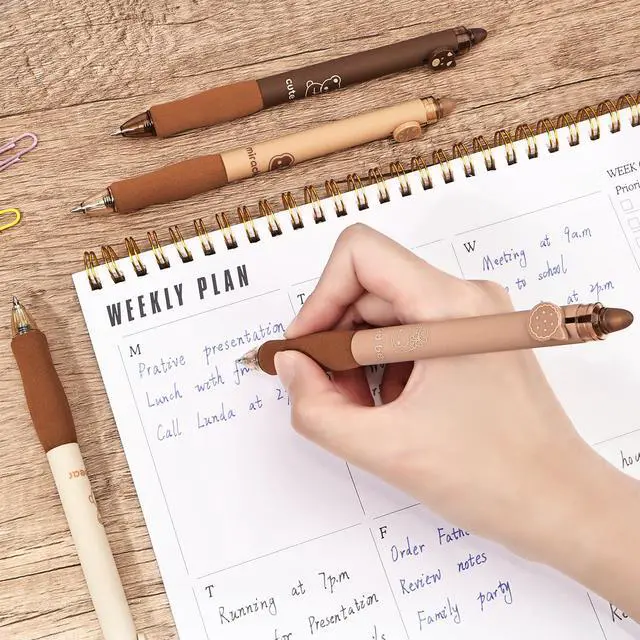 cute
WEEK
WEEKLY PLAN
Prior
M
T
W
Prative presentation
Lunch with
Call Lunda at
Meeting at 9a.m
to school
at 2p.m
T
Running at 7p.m
for Presentation
F
Order
Review notes
Family party